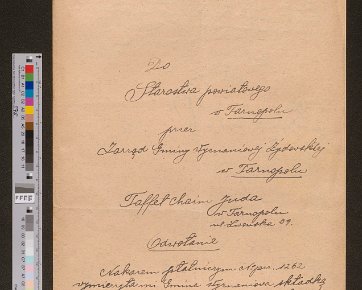 Do
Starostwa powiatowego
w Tarnopolu
przez
Zarząd Gminy Wyznaniowej Żydowskiej
w Tarnopolu
Taffet Chaim Juda
w Tarnopolu
ul. Lwowska 29.
Odwołanie
Nakazem płatniczym 1262
wymierzyła mi Gmina wyznaniowa składkę